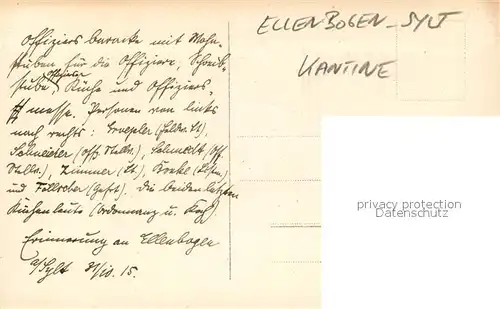 Offiziers baracke mit Wohn-
stuben für die Offiziere, Schreib-
stube, Offizier Küche und Offiziers-
messe. Personen von links
nach rechts: (Feldw. Lt),
Schneider (Off. Stellv.), Schmidt (Off.
Stellv.), Zimmer (Lt),
und (Gefrt). Die beiden letzten
Küchenleute (Ordonnanz u. Koch)
Erinnerung an Ellenbogen
a/Sylt 31/10. 15.
ELLENBOGEN-SYLT
KANTINE
privacy protection
Datenschutz